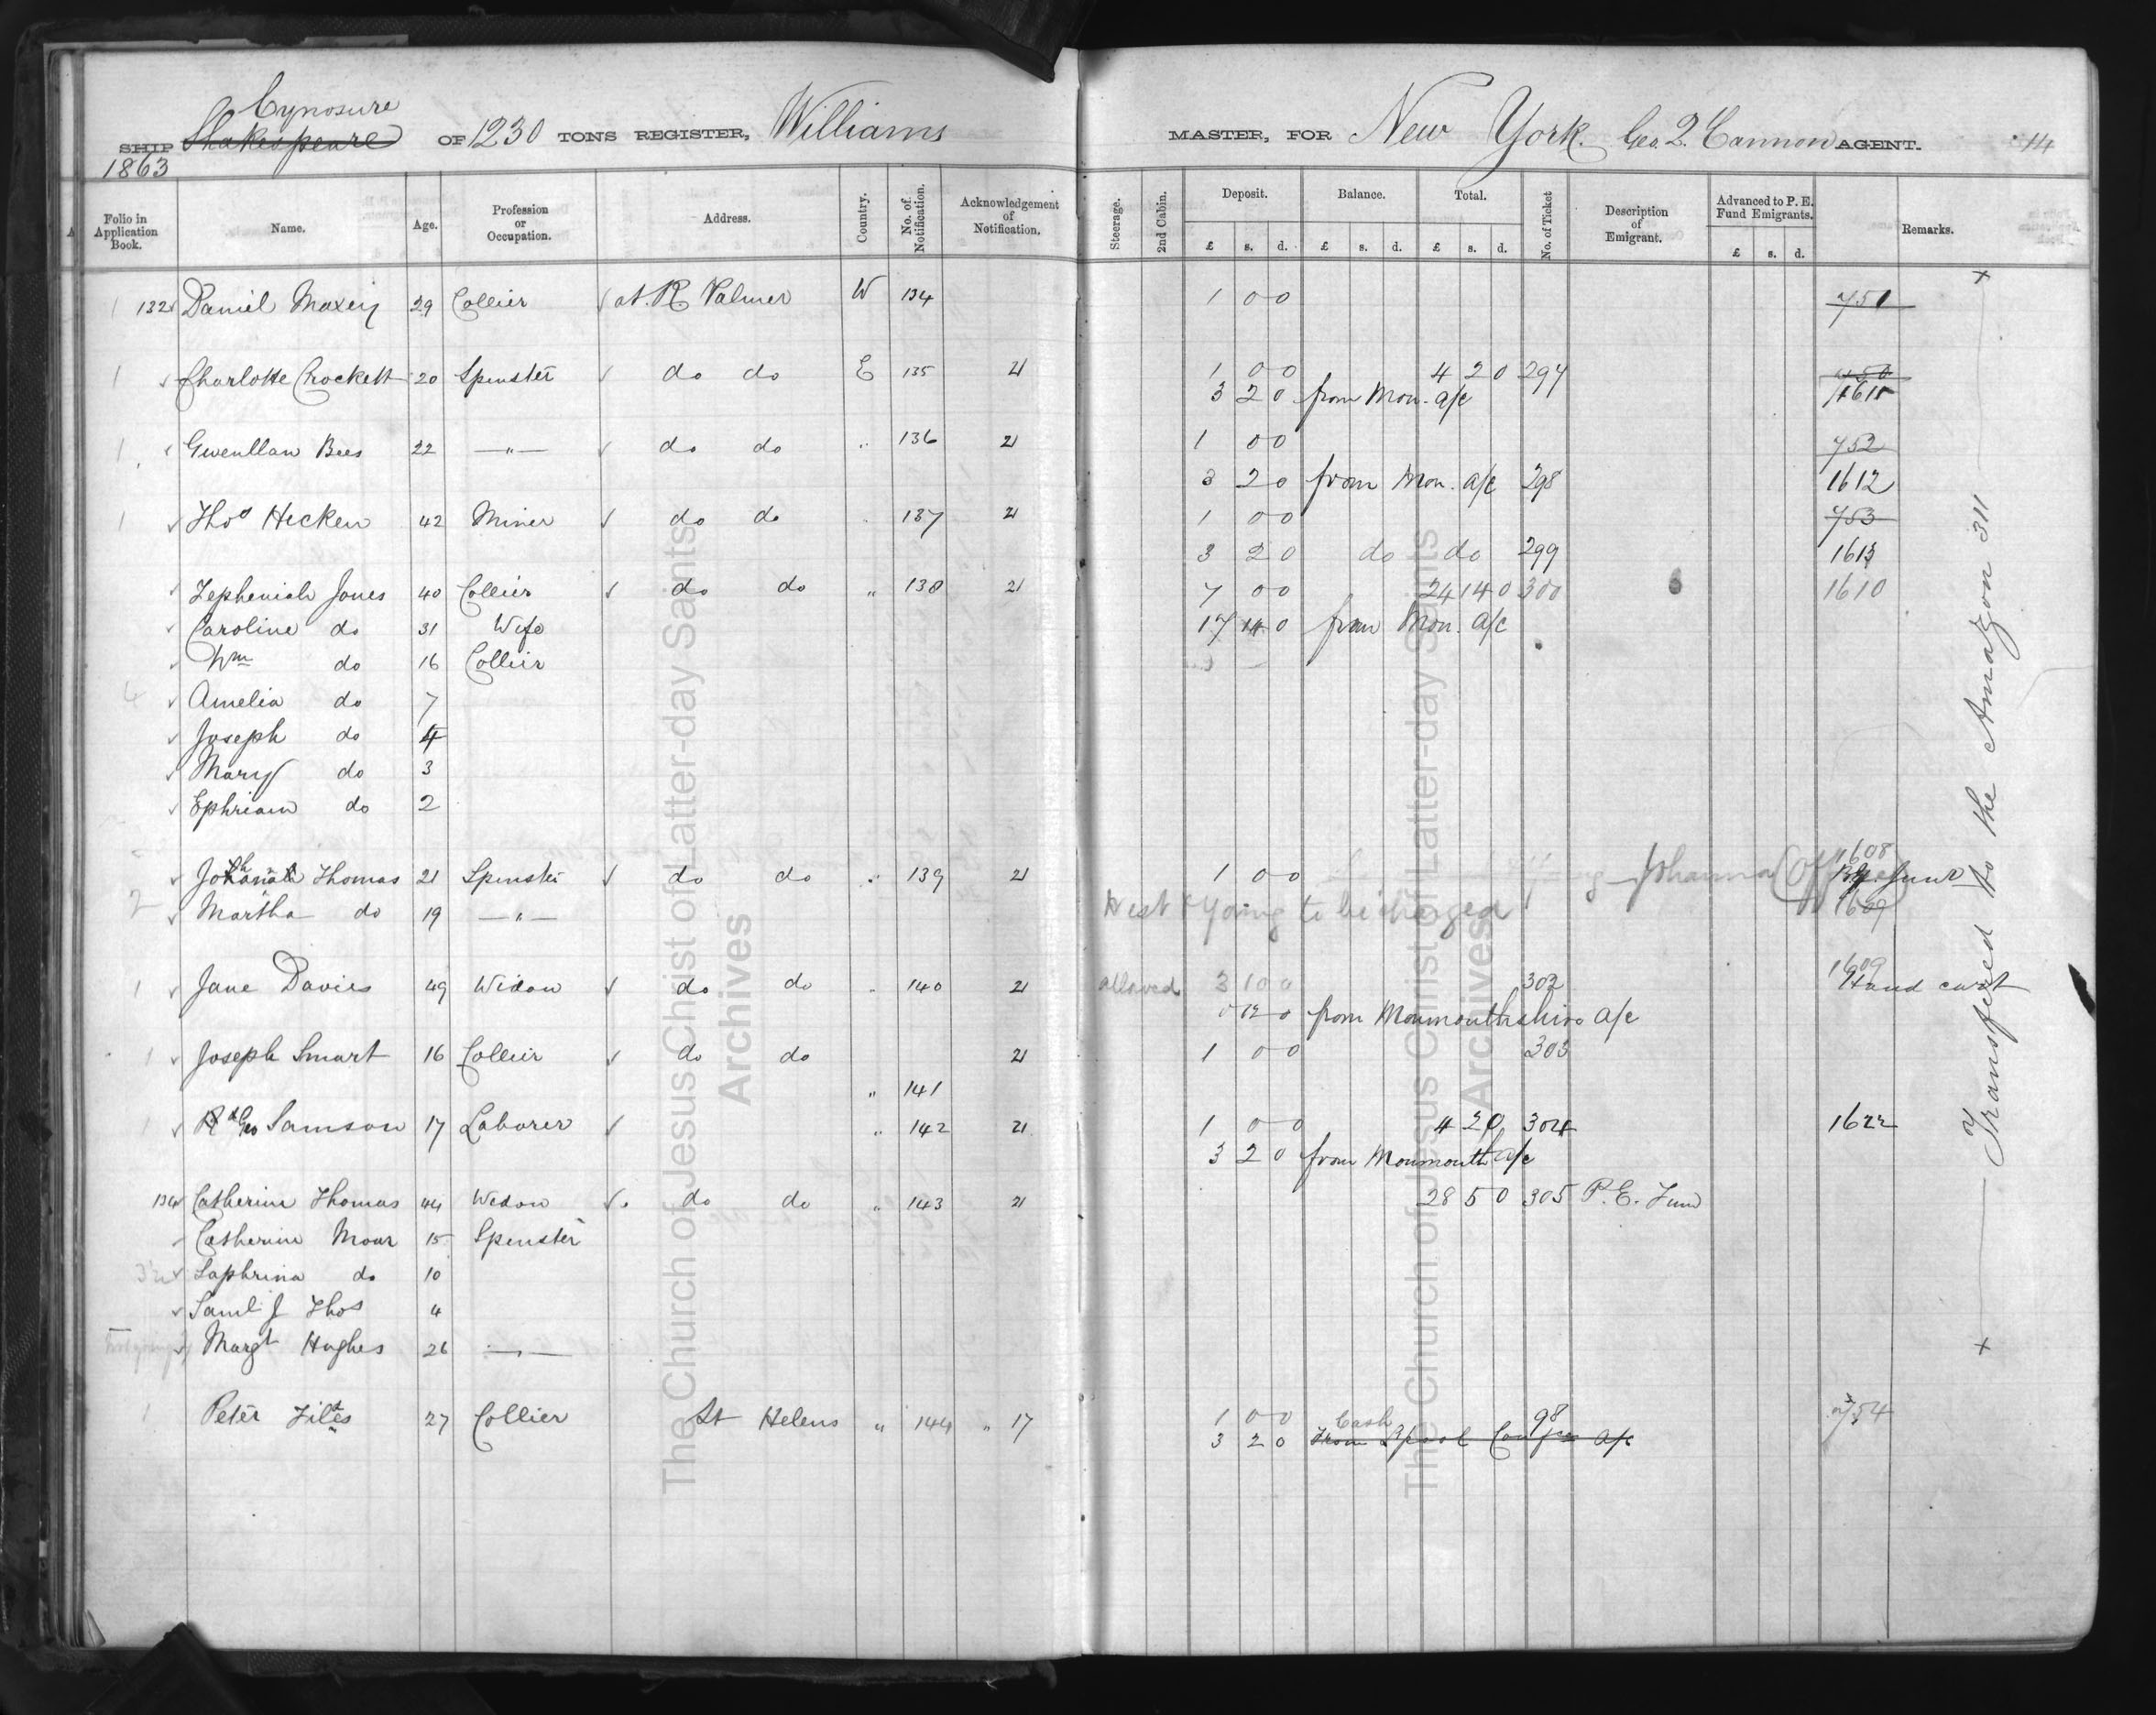 Cynosure
SHIP Shakespeare OF 1230 TONS REGISTER, Williams MASTER, FOR New York. Geo. Q. Cannon AGENT. 14
1863
Folio in Application Book. Name. Age. Profession or Occupation. Address. Country. No. of Notification. Acknowledgement of Notification. Steerage. 2nd Cabin. Deposit. £ s. d. Balance. £ s. d. Total. £ s. d. No. of Ticket Description of Emigrant. Advanced to P. E. Fund Emigrants. £ s. d. Remarks.
1 132 Daniel Maxey 29 Collier at. R Palmer W 134 1 0 0 751
1 Charlotte Crockett 20 Spinster do do E 135 21 1 0 0 4 2 0 297
3 2 0 from Mon. a/c 1611
1 Gwenllan Bees 22 — " — do do " 136 21 1 0 0 752
3 2 0 from Mon. a/c 298 1612
1 Thos Hicken 42 Miner do do 137 21 1 0 0 753
3 2 0 do do 299 1613
Zepheniah Jones 40 Collier do do " 138 21 7 0 0 24 14 0 300 6 1610
Caroline do 31 Wife 17 14 0 from Mon. a/c
Wm do 16 Collier
4 Amelia do 7
Joseph do 4
Mary do 3
Ephriam do 2
Thomas 21 Spinster do do " 139 21 1 0 0 Johanna 1608
2 Martha do 19 — " — West & Going to be charged 1609
1 Jane Davies 49 Widow do do " 140 21 allowed 3 10 0 302 1609 Hand cart
0 12 0 from Monmouthshire a/c
1 Joseph Smart 16 Collier do do 21 1 0 0 303
" 141
1 Geo Samson 17 Laborer " 142 21 1 0 0 4 2 0 304 1622
3 2 0 from Monmouth a/c
134 Catherine Thomas 44 Widow do do " 143 21 28 5 0 305 P. E. Fund
Catherine Moar 15 Spinster
Saphrina do 10
Saml J Thos 4
Margt Hughes 26 — " —
1 Peter Tilts 27 Collier St Helens " 144 " 17 1 0 0 98 754
3 2 0 Cash From Lpool Confce a/c
Transfered to the Amazon 311
The Church of Jesus Christ of Latter-day Saints
Archives
The Church of Jesus Christ of Latter-day Saints
Archives